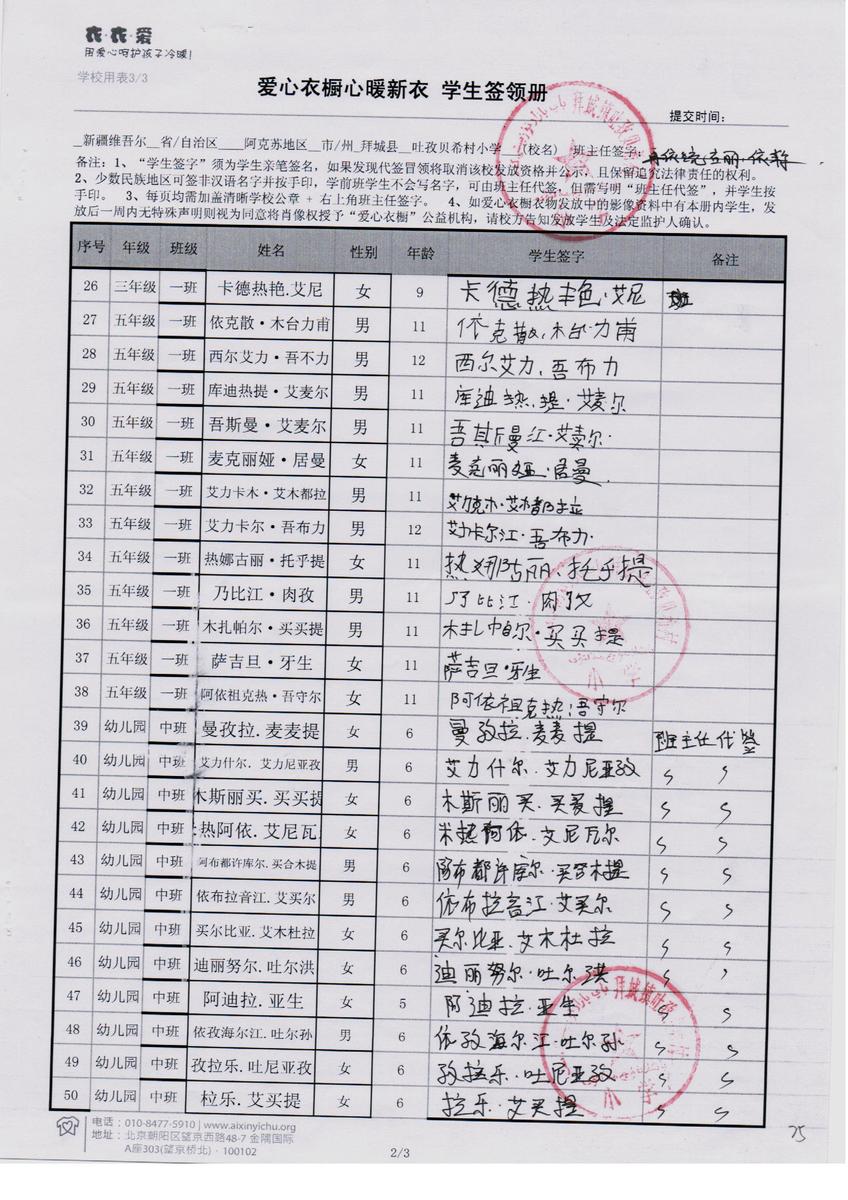 衣·衣·爱
用爱心呵护孩子冷暖!
学校用表3/3
爱心衣橱心暖新衣 学生签领册
提交时间:
新疆维吾尔 省/自治区 阿克苏地区 市/州 拜城县 吐孜贝希村小学 (校名) 班主任签字:
备注: 1、“学生签字”须为学生亲笔签名,如果发现代签冒领将取消该校发放资格并公示,且保留追究法律责任的权利。
2、少数民族地区可签非汉语名字并按手印,学前班学生不会写名字,可由班主任代签,但需写明“班主任代签”,并学生按
手印。 3、每页均需加盖清晰学校公章 + 右上角班主任签字。 4、如爱心衣橱衣物发放中的影像资料中有本册内学生,发
放后一周内无特殊声明则视为同意将肖像权授予“爱心衣橱”公益机构,请校方告知发放学生及法定监护人确认。
序号 年级 班级 姓名 性别 年龄 学生签字 备注
26 三年级 一班 卡德热艳.艾尼 女 9 卡德热艳·艾尼
27 五年级 一班 依克散·木台力甫 男 11 依克散.木台力甫
28 五年级 一班 西尔艾力·吾不力 男 12 西尔艾力.吾布力
29 五年级 一班 库迪热提·艾麦尔 男 11 库迪热提·艾麦尔
30 五年级 一班 吾斯曼·艾麦尔 男 11 吾斯曼江·艾麦尔
31 五年级 一班 麦克丽娅·居曼 女 11 麦克丽娅·居曼
32 五年级 一班 艾力卡木·艾木都拉 男 11
33 五年级 一班 艾力卡尔·吾布力 男 12 艾力卡尔江·吾布力
34 五年级 一班 热娜古丽·托乎提 女 11 热娜古丽·托乎提
35 五年级 一班 乃比江·肉孜 男 11 乃比江·肉孜
36 五年级 一班 木扎帕尔·买买提 男 11 木扎帕尔·买买提
37 五年级 一班 萨吉旦·牙生 女 11 萨吉旦·牙生
38 五年级 一班 阿依祖克热·吾守尔 女 11 阿依祖克热·吾守尔
39 幼儿园 中班 曼孜拉.麦麦提 女 6 曼孜拉.麦麦提 班主任代签
40 幼儿园 中班 艾力什尔. 艾力尼亚孜 男 6 艾力什尔.艾力尼亚孜 〃 〃
41 幼儿园 中班 木斯丽买.买买提 女 6 木斯丽买.买买提 〃 〃
42 幼儿园 中班 热阿依.艾尼瓦 女 6 米热阿依.艾尼瓦尔 〃 〃
43 幼儿园 中班 阿布都许库尔.买合木提 男 6 阿布都许库尔·买合木提 〃 〃
44 幼儿园 中班 依布拉音江.艾买尔 男 6 依布拉音江.艾买尔 〃 〃
45 幼儿园 中班 买尔比亚.艾木杜拉 女 6 买尔比亚.艾木杜拉 〃 〃
46 幼儿园 中班 迪丽努尔.吐尔洪 女 6 迪丽努尔·吐尔洪 〃 〃
47 幼儿园 中班 阿迪拉.亚生 女 5 阿迪拉.亚生 〃 〃
48 幼儿园 中班 依孜海尔江.吐尔孙 男 6 依孜海尔江·吐尔孙 〃 〃
49 幼儿园 中班 孜拉乐.吐尼亚孜 女 6 孜拉乐·吐尼亚孜 〃 〃
50 幼儿园 中班 拉乐.艾买提 女 6 拉乐·艾买提 〃 〃
电话:010-8477-5910 | www.aixinyichu.org
地址:北京朝阳区望京西路48-7 金隅国际
A座303(望京桥北)·100102
2/3
25